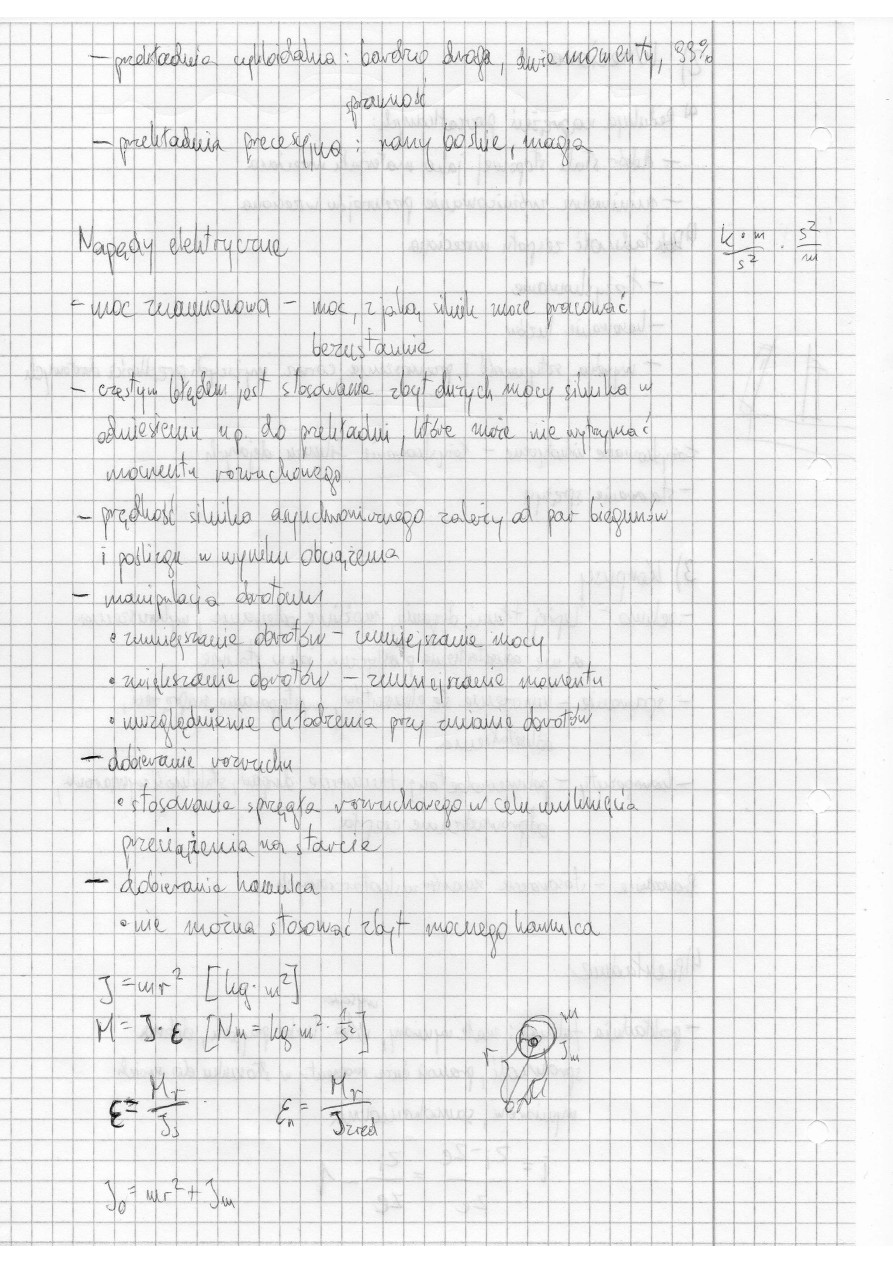 – przekładnia cykloidalna : bardzo droga, duże momenty, 93%
sprawność
– przekładnia precesyjna : rany boskie, magia
Napędy elektryczne
k · m / s² · s² / m
– moc znamionowa – moc, z jaką silnik może pracować
bezustannie
– częstym błędem jest stosowanie zbyt dużych mocy silnika w
odniesieniu np. do przekładni, które może nie wytrzymać
momentu rozruchowego
– prędkość silnika asynchronicznego zależy od par biegunów
i poślizgu w wyniku obciążenia
– manipulacja obrotami
• zmniejszanie obrotów – zmniejszanie mocy
• zwiększanie obrotów – zmniejszanie momentu
• uwzględnienie chłodzenia przy zmianie obrotów
– dobieranie rozruchu
• stosowanie sprzęgła rozruchowego w celu uniknięcia
przeciążenia na starcie
– dobieranie hamulca
• nie można stosować zbyt mocnego hamulca
J = mr² [kg · m²]
M = J · ε [Nm = kg · m² · 1/s²]
m
Jm
r
ε = Mr / Js εn = Mr / Jzred
J₀ = mr² + Jm